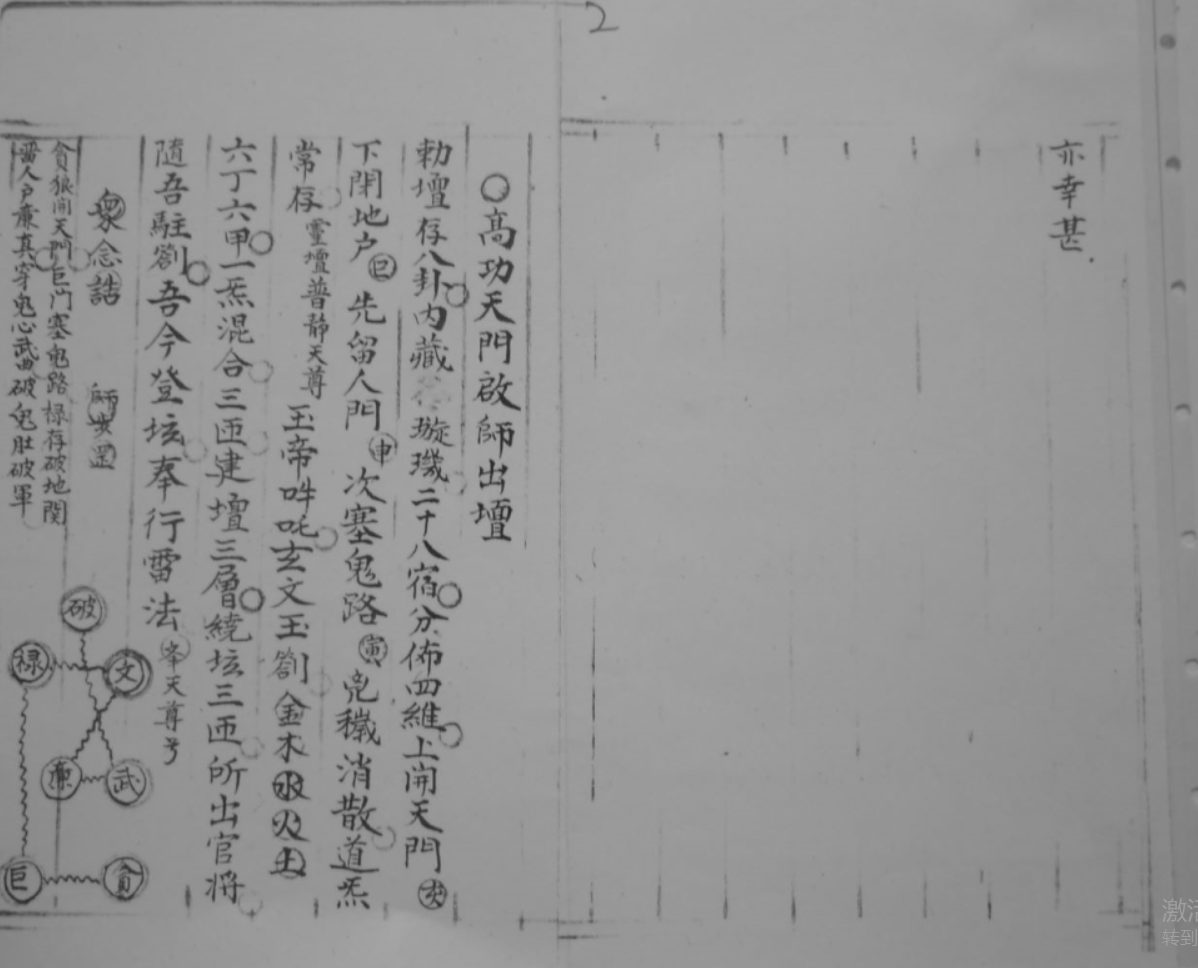 2
亦幸甚
○高功天門啟師出壇
勅壇存八卦內藏 璇璣二十八宿分佈四維上開天門
下閉地户 先留人門申 次塞鬼路寅 兇穢消散道炁
常存 靈壇普靜天尊 玉帝吽吒玄文玉劄 金木水火土
六丁六甲一炁混合三匝建壇三層繞垓三匝所出官将
隨吾駐劄吾今登垓奉行雷法 天尊号
衆念誥 師步罡
貪狼開天門巨门塞鬼路禄存破地関
畱人户廉真穿鬼心武曲破鬼肚破軍
破
禄 文
廉 武
巨 貪
激活
转到